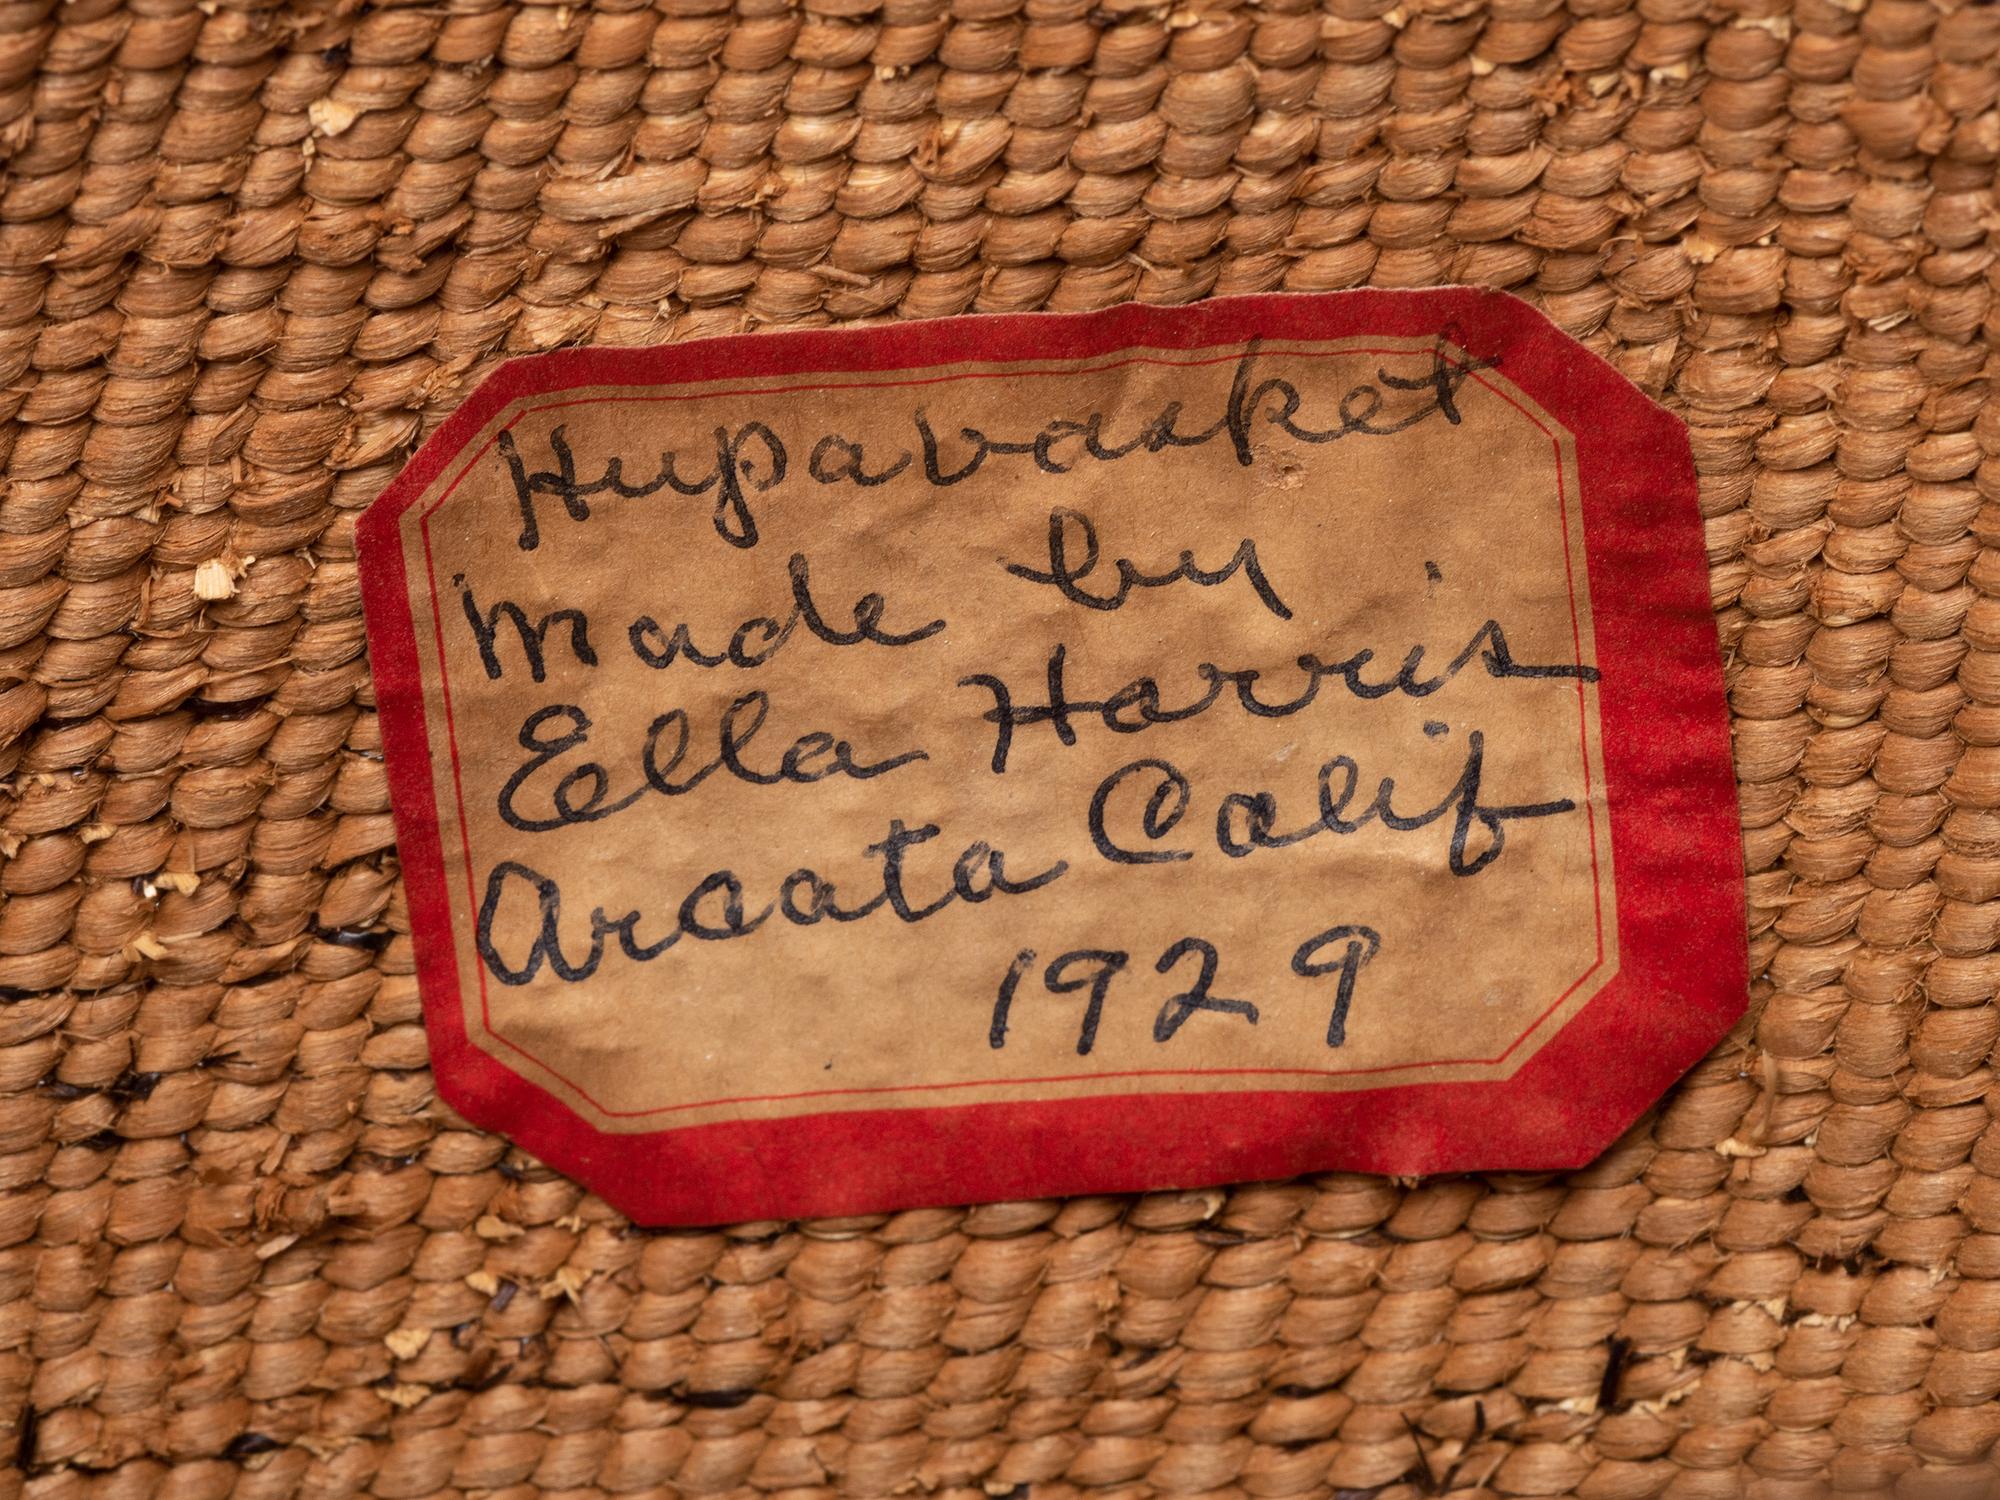 Hupa basket
Made by
Ella Harris
Arcata Calif
1929